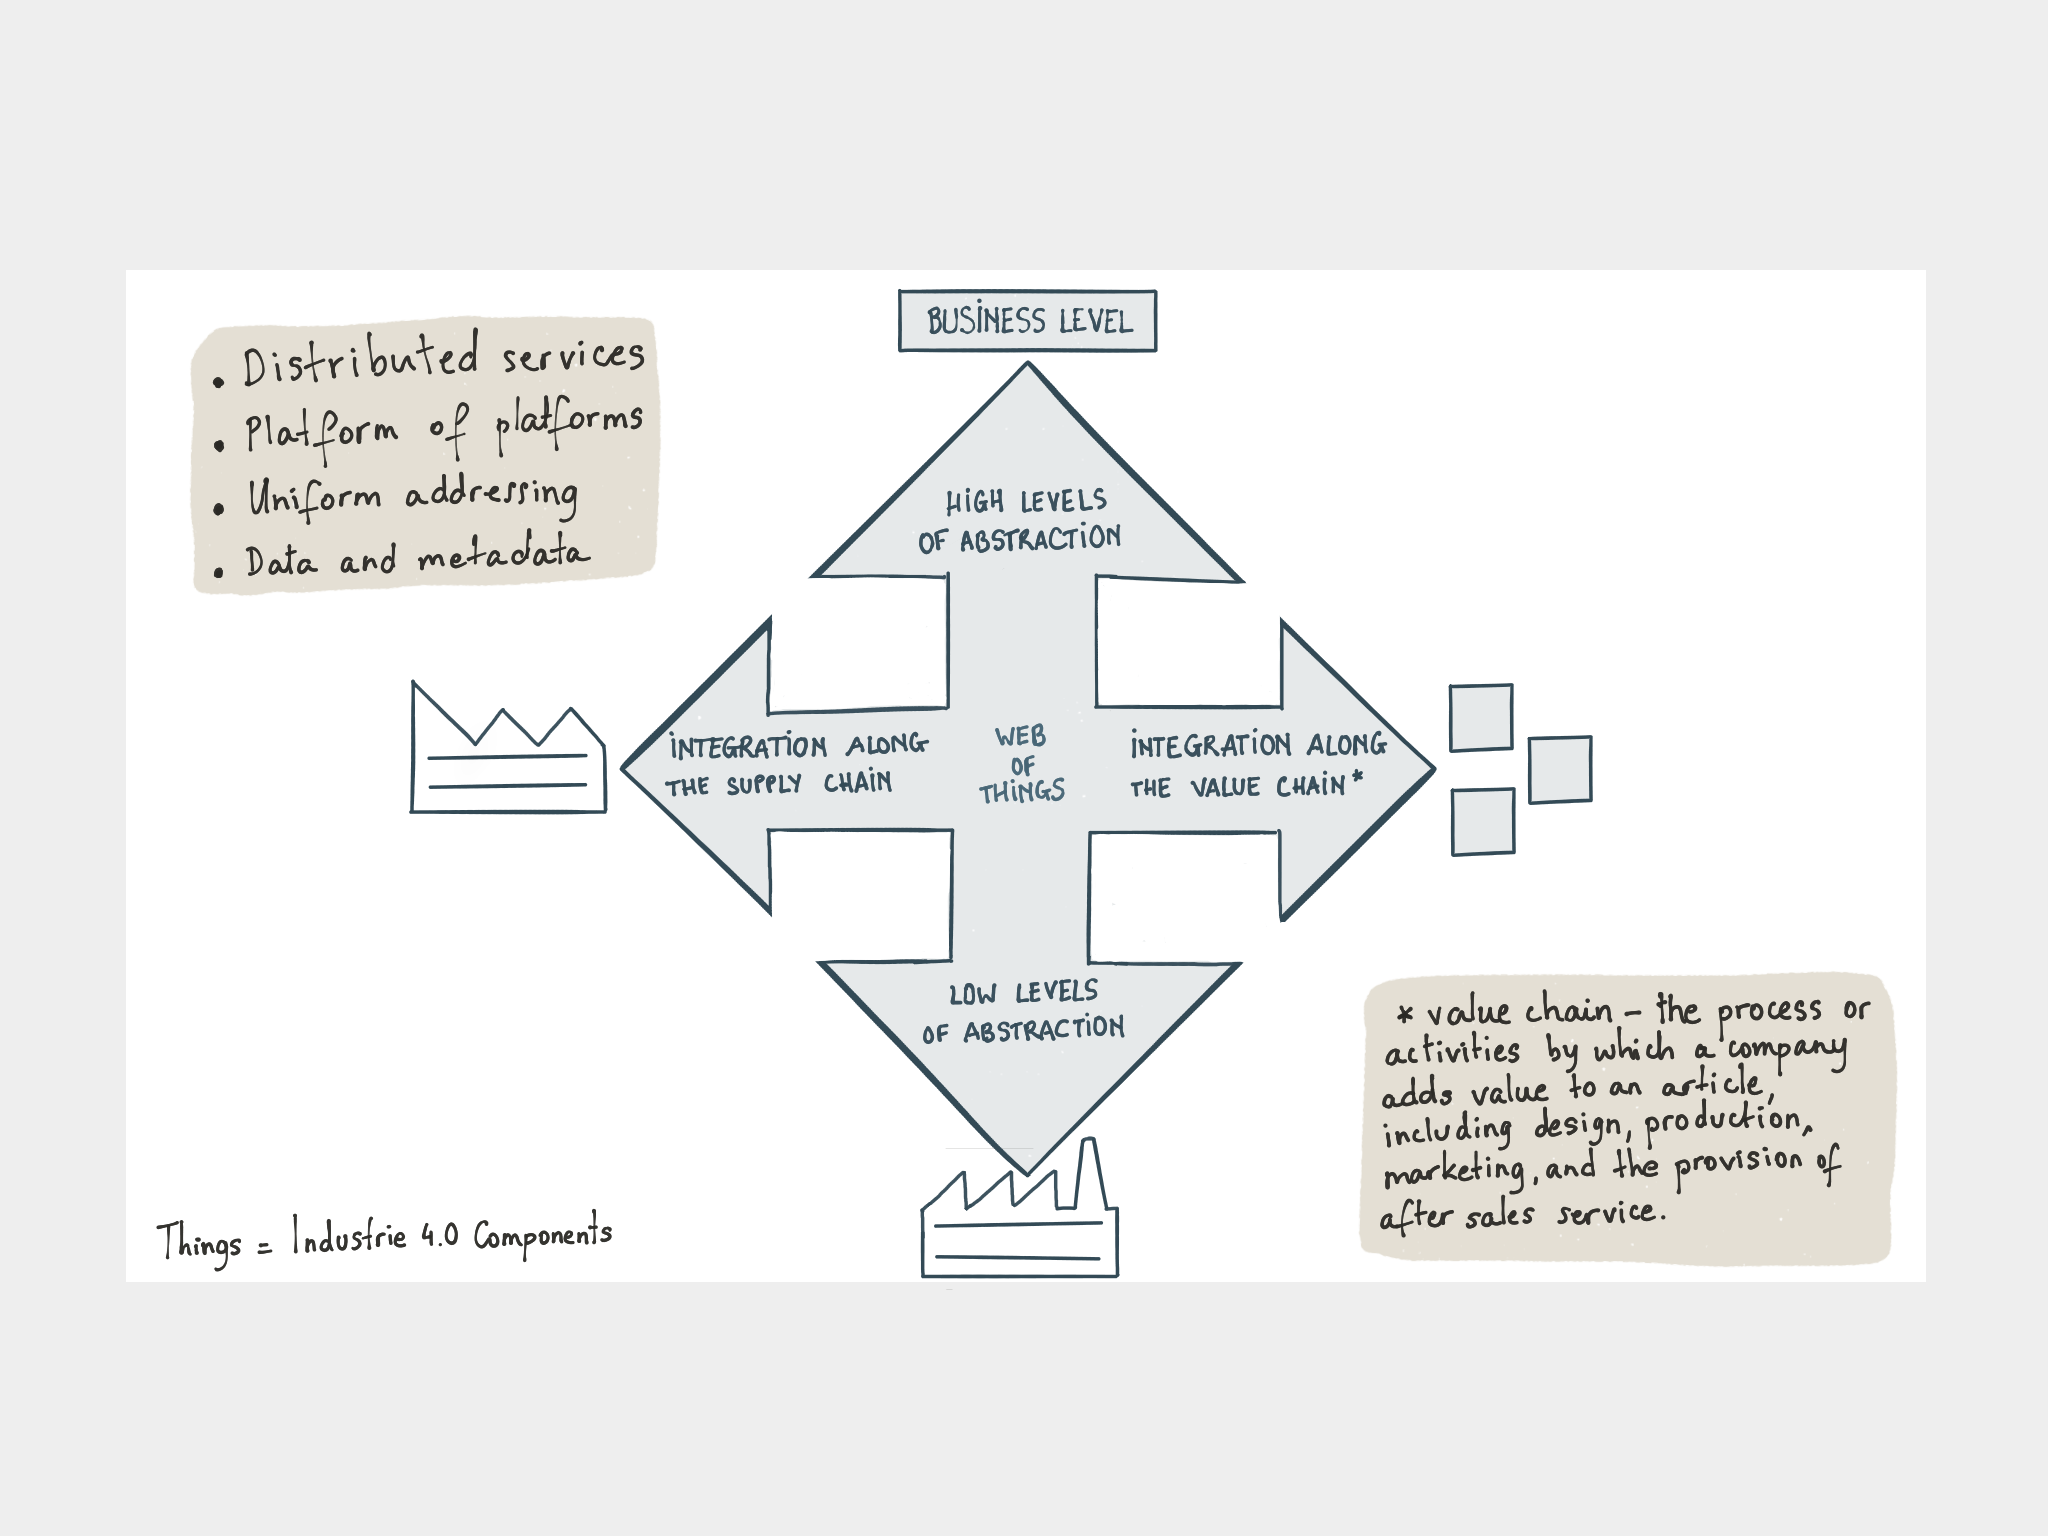 BUSINESS LEVEL
• Distributed services
• Platform of platforms
• Uniform addressing
• Data and metadata
HIGH LEVELS
OF ABSTRACTION
INTEGRATION ALONG
THE SUPPLY CHAIN
WEB
OF
THINGS
INTEGRATION ALONG
THE VALUE CHAIN*
LOW LEVELS
OF ABSTRACTION
* value chain – the process or
activities by which a company
adds value to an article,
including design, production,
marketing, and the provision of
after sales service.
Things = Industrie 4.0 Components